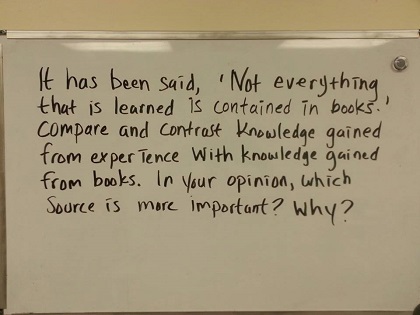 It has been said, 'Not everything
that is learned is contained in books.'
Compare and contrast knowledge gained
from experience with knowledge gained
from books. In your opinion, which
source is more important? Why?